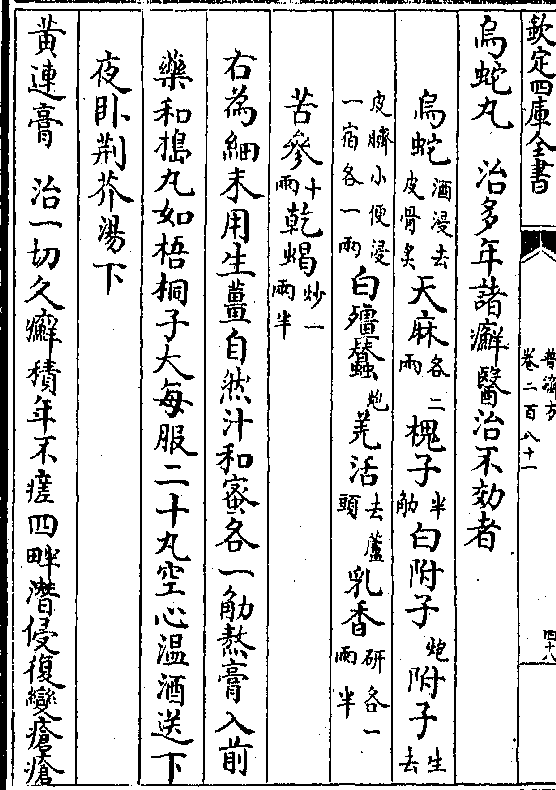 欽定四庫全書
普濟方
卷二百八十一
四十八
烏蛇丸　治多年諸癬醫治不効者
烏蛇酒浸去皮骨炙天麻各二兩槐子半觔白附子炮附子生去
皮臍小便浸一宿各一兩白殭蠶炮羌活去蘆頭乳香研各一兩半
苦參十兩乾蝎炒一兩半
右為細末用生薑自然汁和蜜各一觔熬膏入前
藥和搗丸如梧桐子大每服二十丸空心温酒送下
夜卧荆芥湯下
黃連膏　治一切久癬積年不瘥四畔潛侵復變瘡瘡